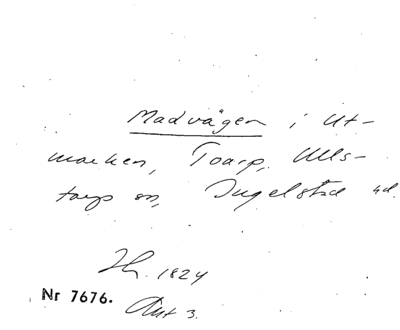 Madvägen i Ut-
marken, Toarp, Ulls-
tarps sn, Ingelstad hd.
Th. 1824
Nr 7676.
Ant 3.